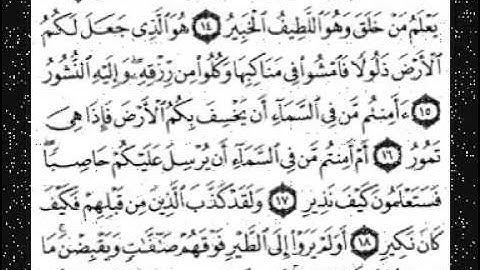 يَعْلَمُ مَنْ خَلَقَ وَهُوَ ٱللَّطِيفُ ٱلْخَبِيرُ ١٤ هُوَ ٱلَّذِى جَعَلَ لَكُمُ
ٱلْأَرْضَ ذَلُولًا فَٱمْشُوا۟ فِى مَنَاكِبِهَا وَكُلُوا۟ مِن رِّزْقِهِۦ وَإِلَيْهِ ٱلنُّشُورُ
١٥ ءَأَمِنتُم مَّن فِى ٱلسَّمَآءِ أَن يَخْسِفَ بِكُمُ ٱلْأَرْضَ فَإِذَا هِىَ
تَمُورُ ١٦ أَمْ أَمِنتُم مَّن فِى ٱلسَّمَآءِ أَن يُرْسِلَ عَلَيْكُمْ حَاصِبًا
فَسَتَعْلَمُونَ كَيْفَ نَذِيرِ ١٧ وَلَقَدْ كَذَّبَ ٱلَّذِينَ مِن قَبْلِهِمْ فَكَيْفَ
كَانَ نَكِيرِ ١٨ أَوَلَمْ يَرَوْا۟ إِلَى ٱلطَّيْرِ فَوْقَهُمْ صَٰٓفَّٰتٍ وَيَقْبِضْنَ مَا